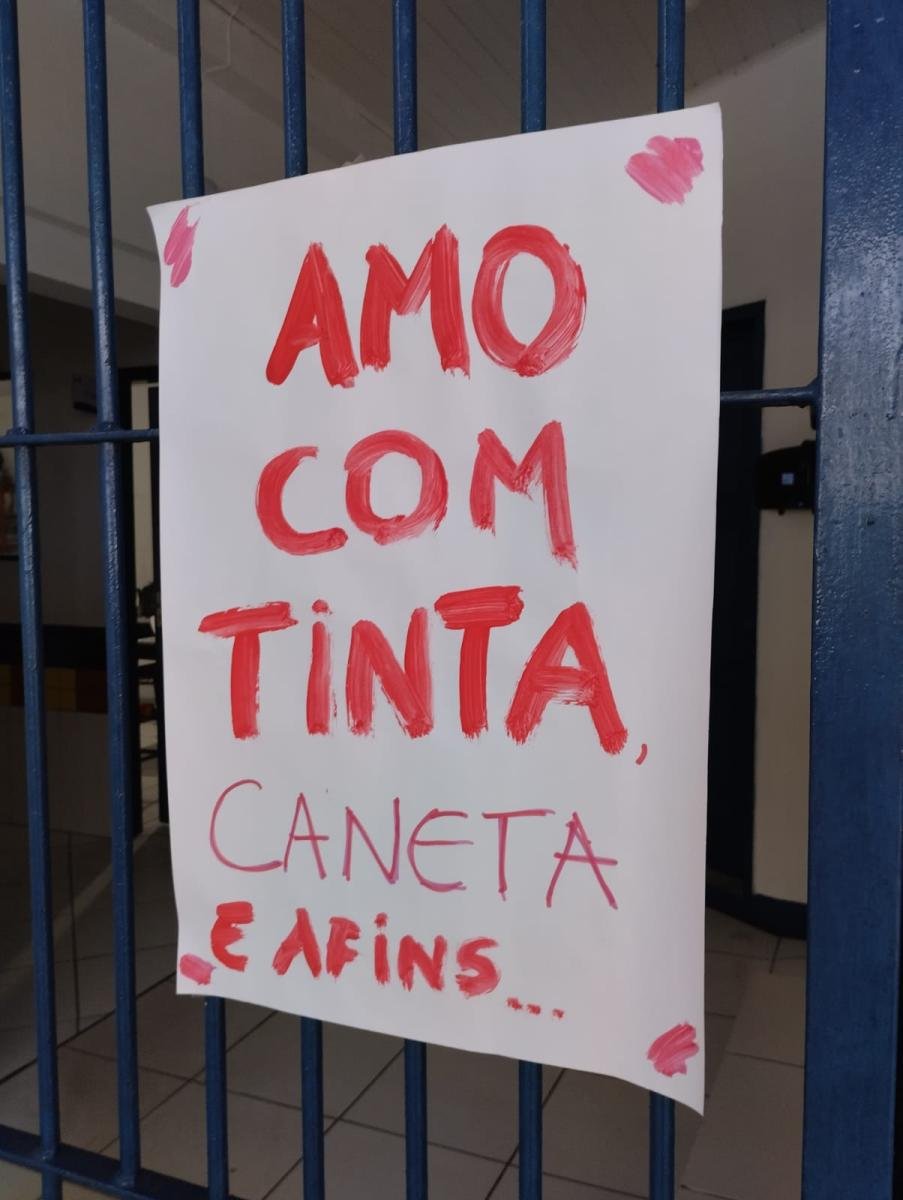 AMO
COM
TINTA,
CANETA
E AFINS...